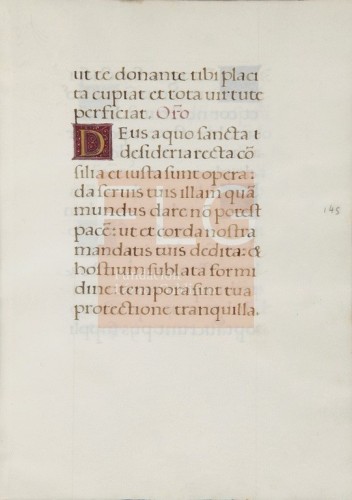 ut te donante tibi placi
ta cupiat et tota uirtute
perficiat. Or̃o
DEus a quo sancta
desideria recta cõ
silia et iusta sunt opera:
da seruis tuis illam quã
mundus dare nõ potest
pacẽ: ut et corda nostra
mandatis tuis dedita: &
hostium sublata formi
dine: tempora sint tua
protectione tranquilla.
145
FLG